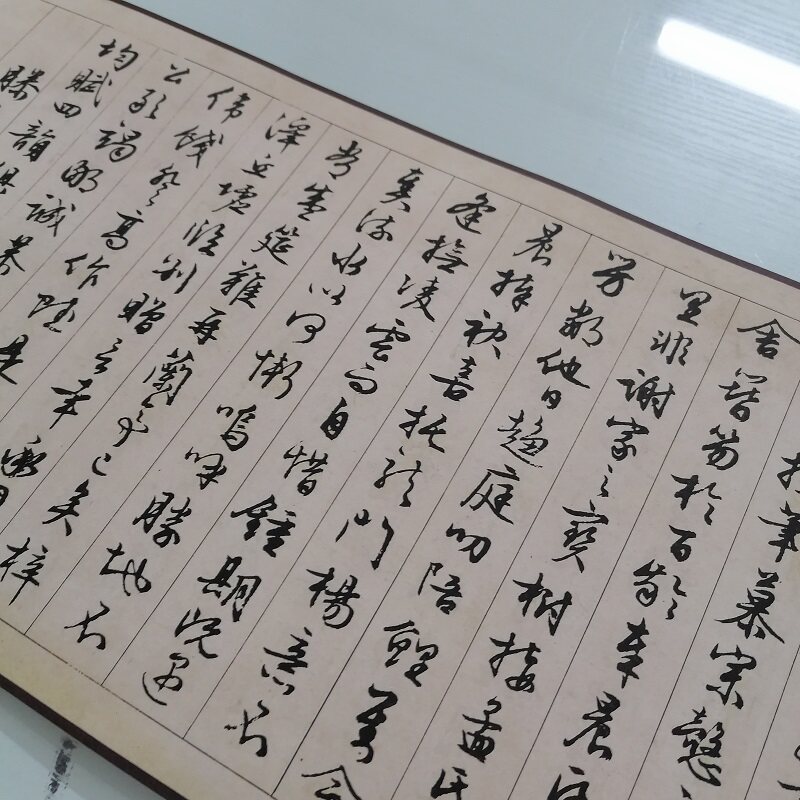 投筆慕宗愨
舍簪笏於百齡奉晨昏
里非謝家之寶樹接孟氏
芳鄰他日趨庭叨陪鯉對今
晨捧袂喜托龍門楊意不
逢撫凌雲而自惜鍾期既遇
奏流水以何慚嗚呼勝地不
常盛筵難再蘭亭已矣梓
澤丘墟臨別贈言幸承
偉餞登高作賦是
公敢竭鄙誠恭
均賦四韻俱
滕